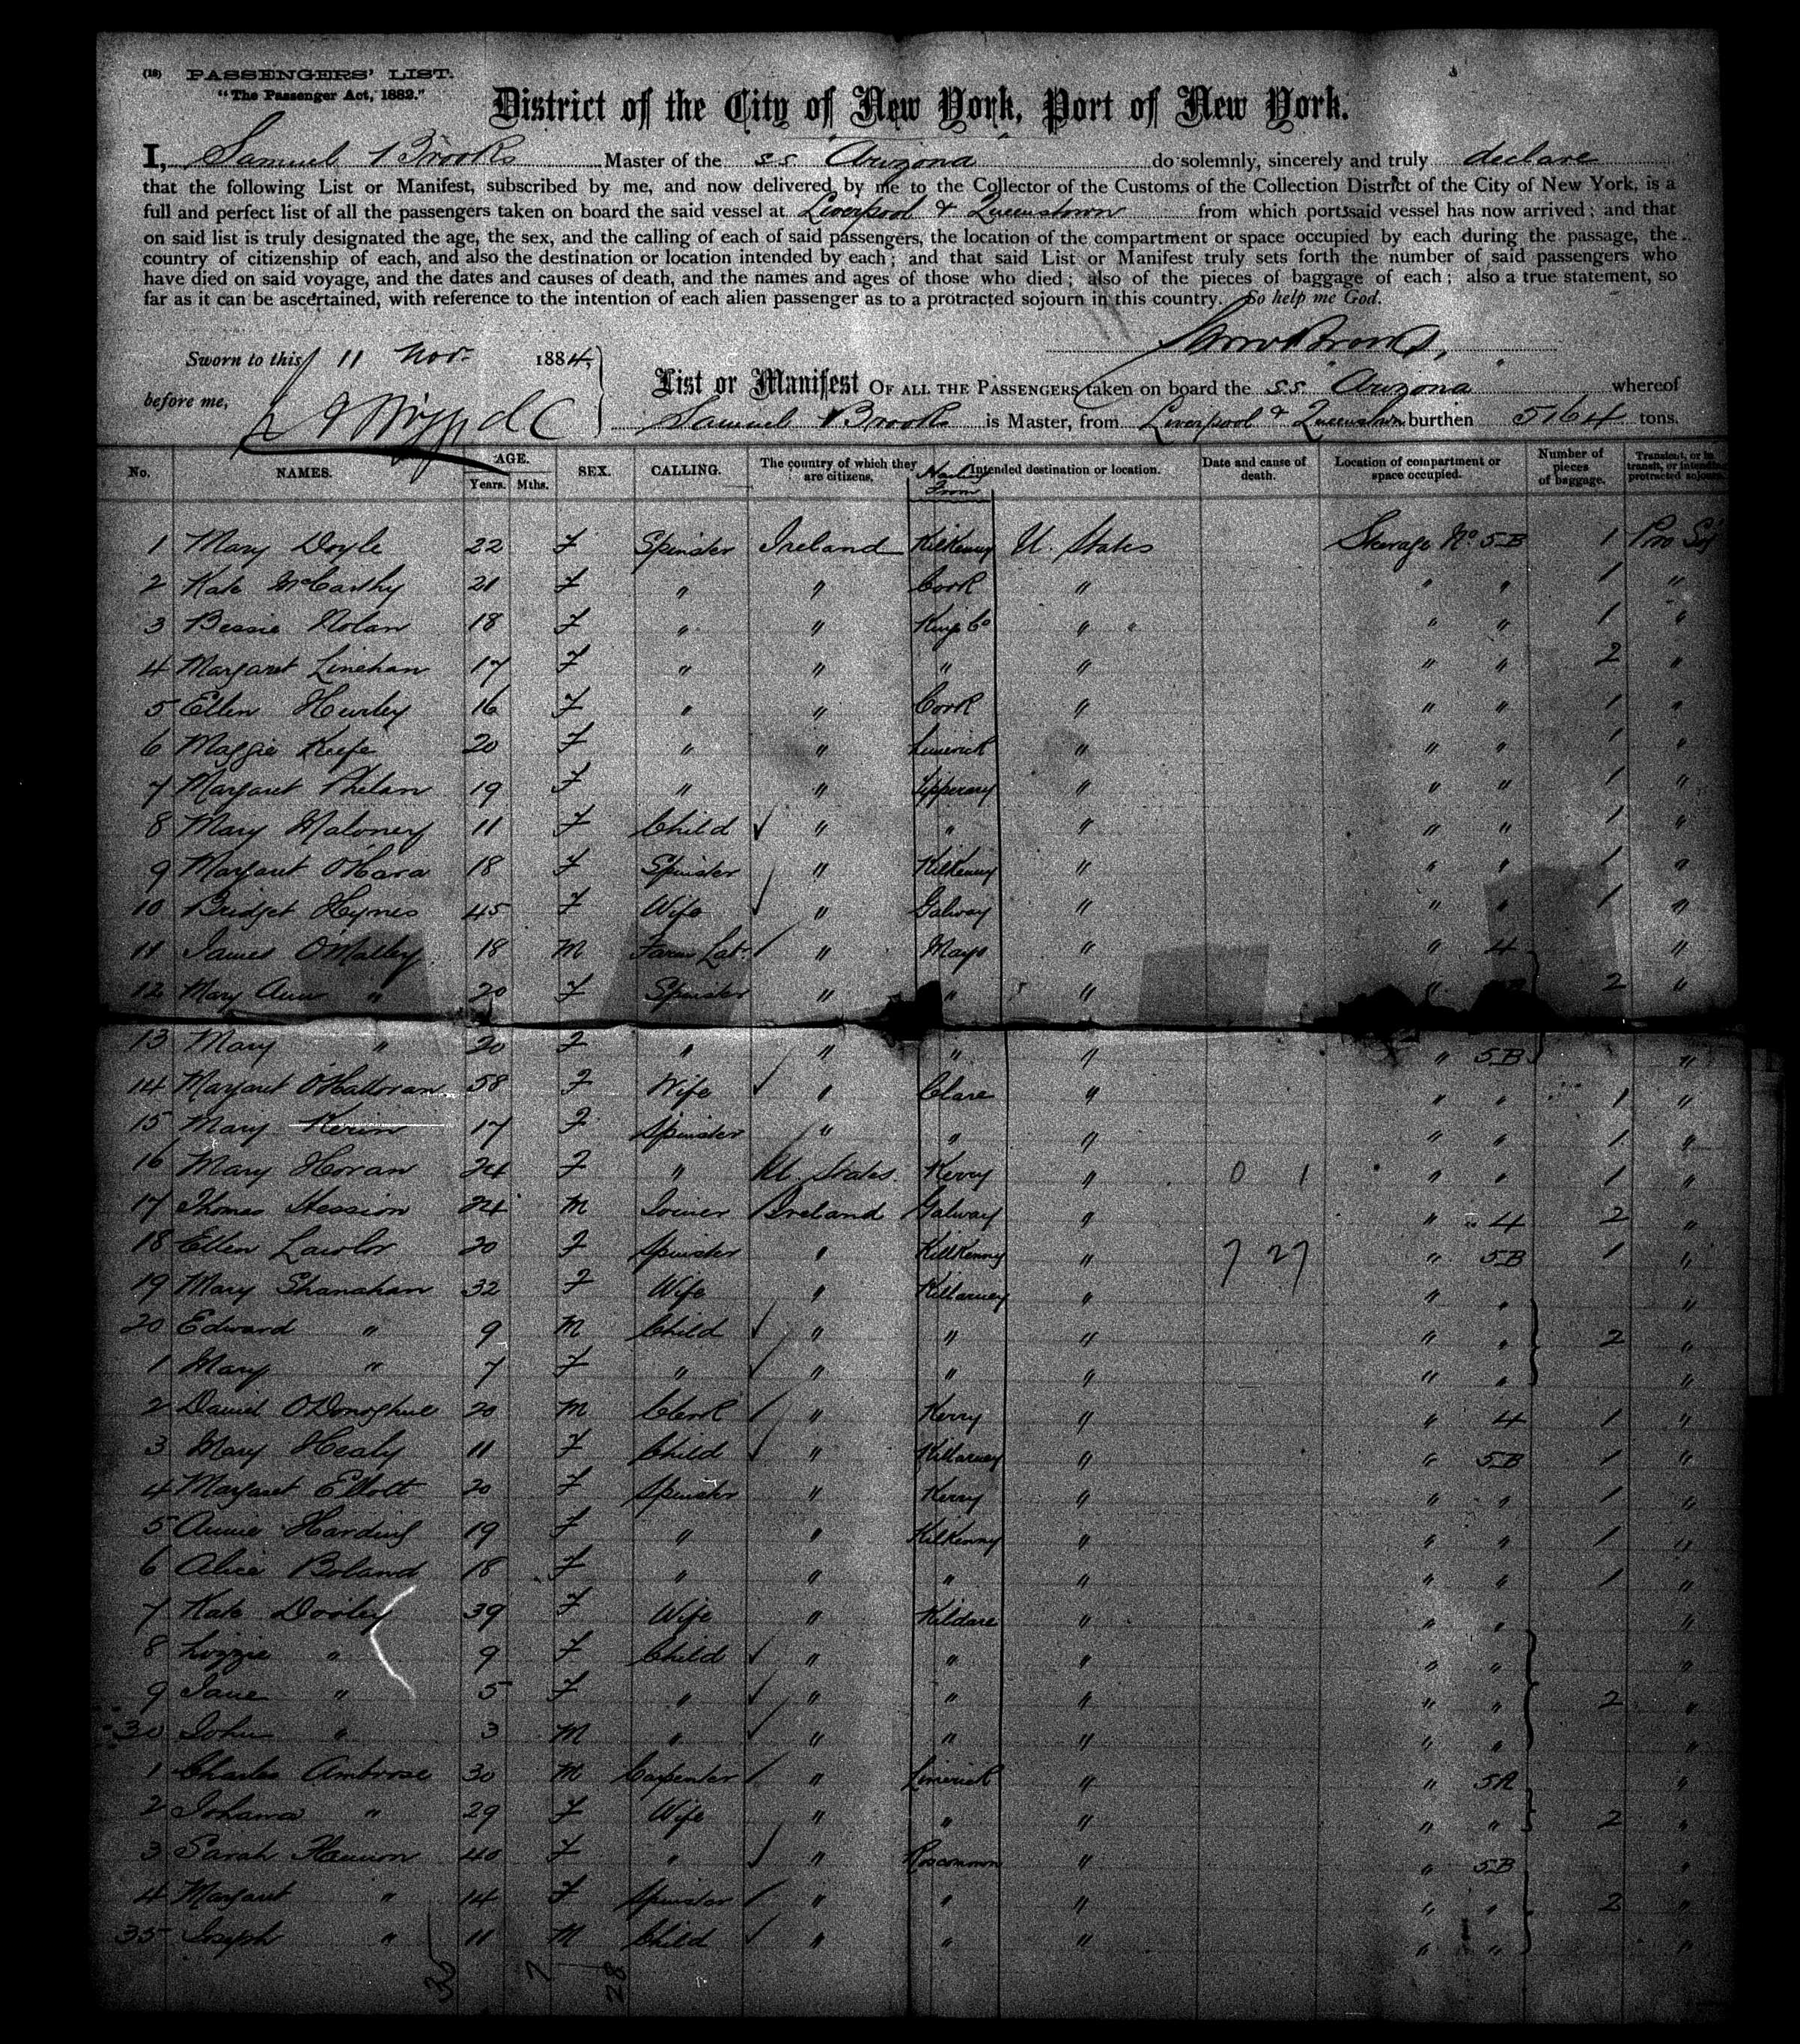 (18) PASSENGERS' LIST.
"The Passenger Act, 1882."
District of the City of New York, Port of New York.
I, Samuel Brooks Master of the SS "Arizona" do solemnly, sincerely and truly declare
that the following List or Manifest, subscribed by me, and now delivered by me to the Collector of the Customs of the Collection District of the City of New York, is a
full and perfect list of all the passengers taken on board the said vessel at Liverpool & Queenstown from which ports said vessel has now arrived; and that
on said list is truly designated the age, the sex, and the calling of each of said passengers, the location of the compartment or space occupied by each during the passage, the
country of citizenship of each, and also the destination or location intended by each; and that said List or Manifest truly sets forth the number of said passengers who
have died on said voyage, and the dates and causes of death, and the names and ages of those who died; also of the pieces of baggage of each; also a true statement, so
far as it can be ascertained, with reference to the intention of each alien passenger as to a protracted sojourn in this country. So help me God.
Sworn to this 11 Nov. 1884,
before me,
List or Manifest OF ALL THE PASSENGERS taken on board the SS "Arizona" whereof
Samuel Brooks is Master, from Liverpool & Queenstown burthen 5164 tons.
No. NAMES. AGE. Years. Mths. SEX. CALLING. The country of which they are citizens. Hailing From Intended destination or location. Date and cause of death. Location of compartment or space occupied. Number of pieces of baggage. Transient, or in transit, or intending protracted sojourn.
1 Mary Doyle 22 F Spinster Ireland Kilkenny U. States Steerage No. 5B 1 Pro Soj
2 Kate McCarthy 21 F " " Cork " " " 1 "
3 Bessie Nolan 18 F " " Kings Co " " " " 1 "
4 Margaret Linehan 17 F " " " " " " 2 "
5 Ellen Hurley 16 F " " Cork " " " 1 "
6 Maggie Keefe 20 F " " Limerick " " " 1 "
7 Margaret Phelan 19 F " " Tipperary " " " 1 "
8 Mary Maloney 11 F Child " " " " " 1 "
9 Margaret O'Hara 18 F Spinster " Kilkenny " " 1 "
10 Bridget Hynes 45 F Wife " Galway " " " 1 "
11 James O'Malley 18 M Farm Labr " Mayo " " 4 "
12 Mary Ann " 20 F Spinster " " " " 2 "
13 Mary " 20 F " " " " " 5B "
14 Margaret O'Halloran 58 F Wife " Clare " " " 1 "
15 Mary Kerin 17 F Spinster " " " " " 1 "
16 Mary Horan 24 F " U. States Kerry " 0 1 " " 1 "
17 Thomas Hession 24 M Joiner Ireland Galway " " 4 2 "
18 Ellen Lawlor 20 F Spinster " Kilkenny " 7 27 " 5B 1 "
19 Mary Shanahan 32 F Wife " Killarney " " " "
20 Edward " 9 M Child " " " " " 2 "
1 Mary " 7 F " " " " " " "
2 Daniel O'Donoghue 20 M Clerk " Kerry " " 4 1 "
3 Mary Healy 11 F Child " Killarney " " 5B 1 "
4 Margaret Elliott 20 F Spinster " Kerry " " " 1 "
5 Annie Harding 19 F " " Kilkenny " " " 1 "
6 Alice Boland 18 F " " " " " " 1 "
7 Kate Dooley 39 F Wife " Kildare " " " "
8 Lizzie " 9 F Child " " " " " "
9 Jane " 5 F " " " " " " 2 "
30 John " 3 M " " " " " " "
1 Charles Ambrose 30 M Carpenter " Limerick " " 5A "
2 Johanna " 29 F Wife " " " " " 2 "
3 Sarah 40 F " " Roscommon " " 5B "
4 Margaret " 14 F Spinster " " " " " 2 "
35 Joseph " 11 M Child " " " " " "
7 28